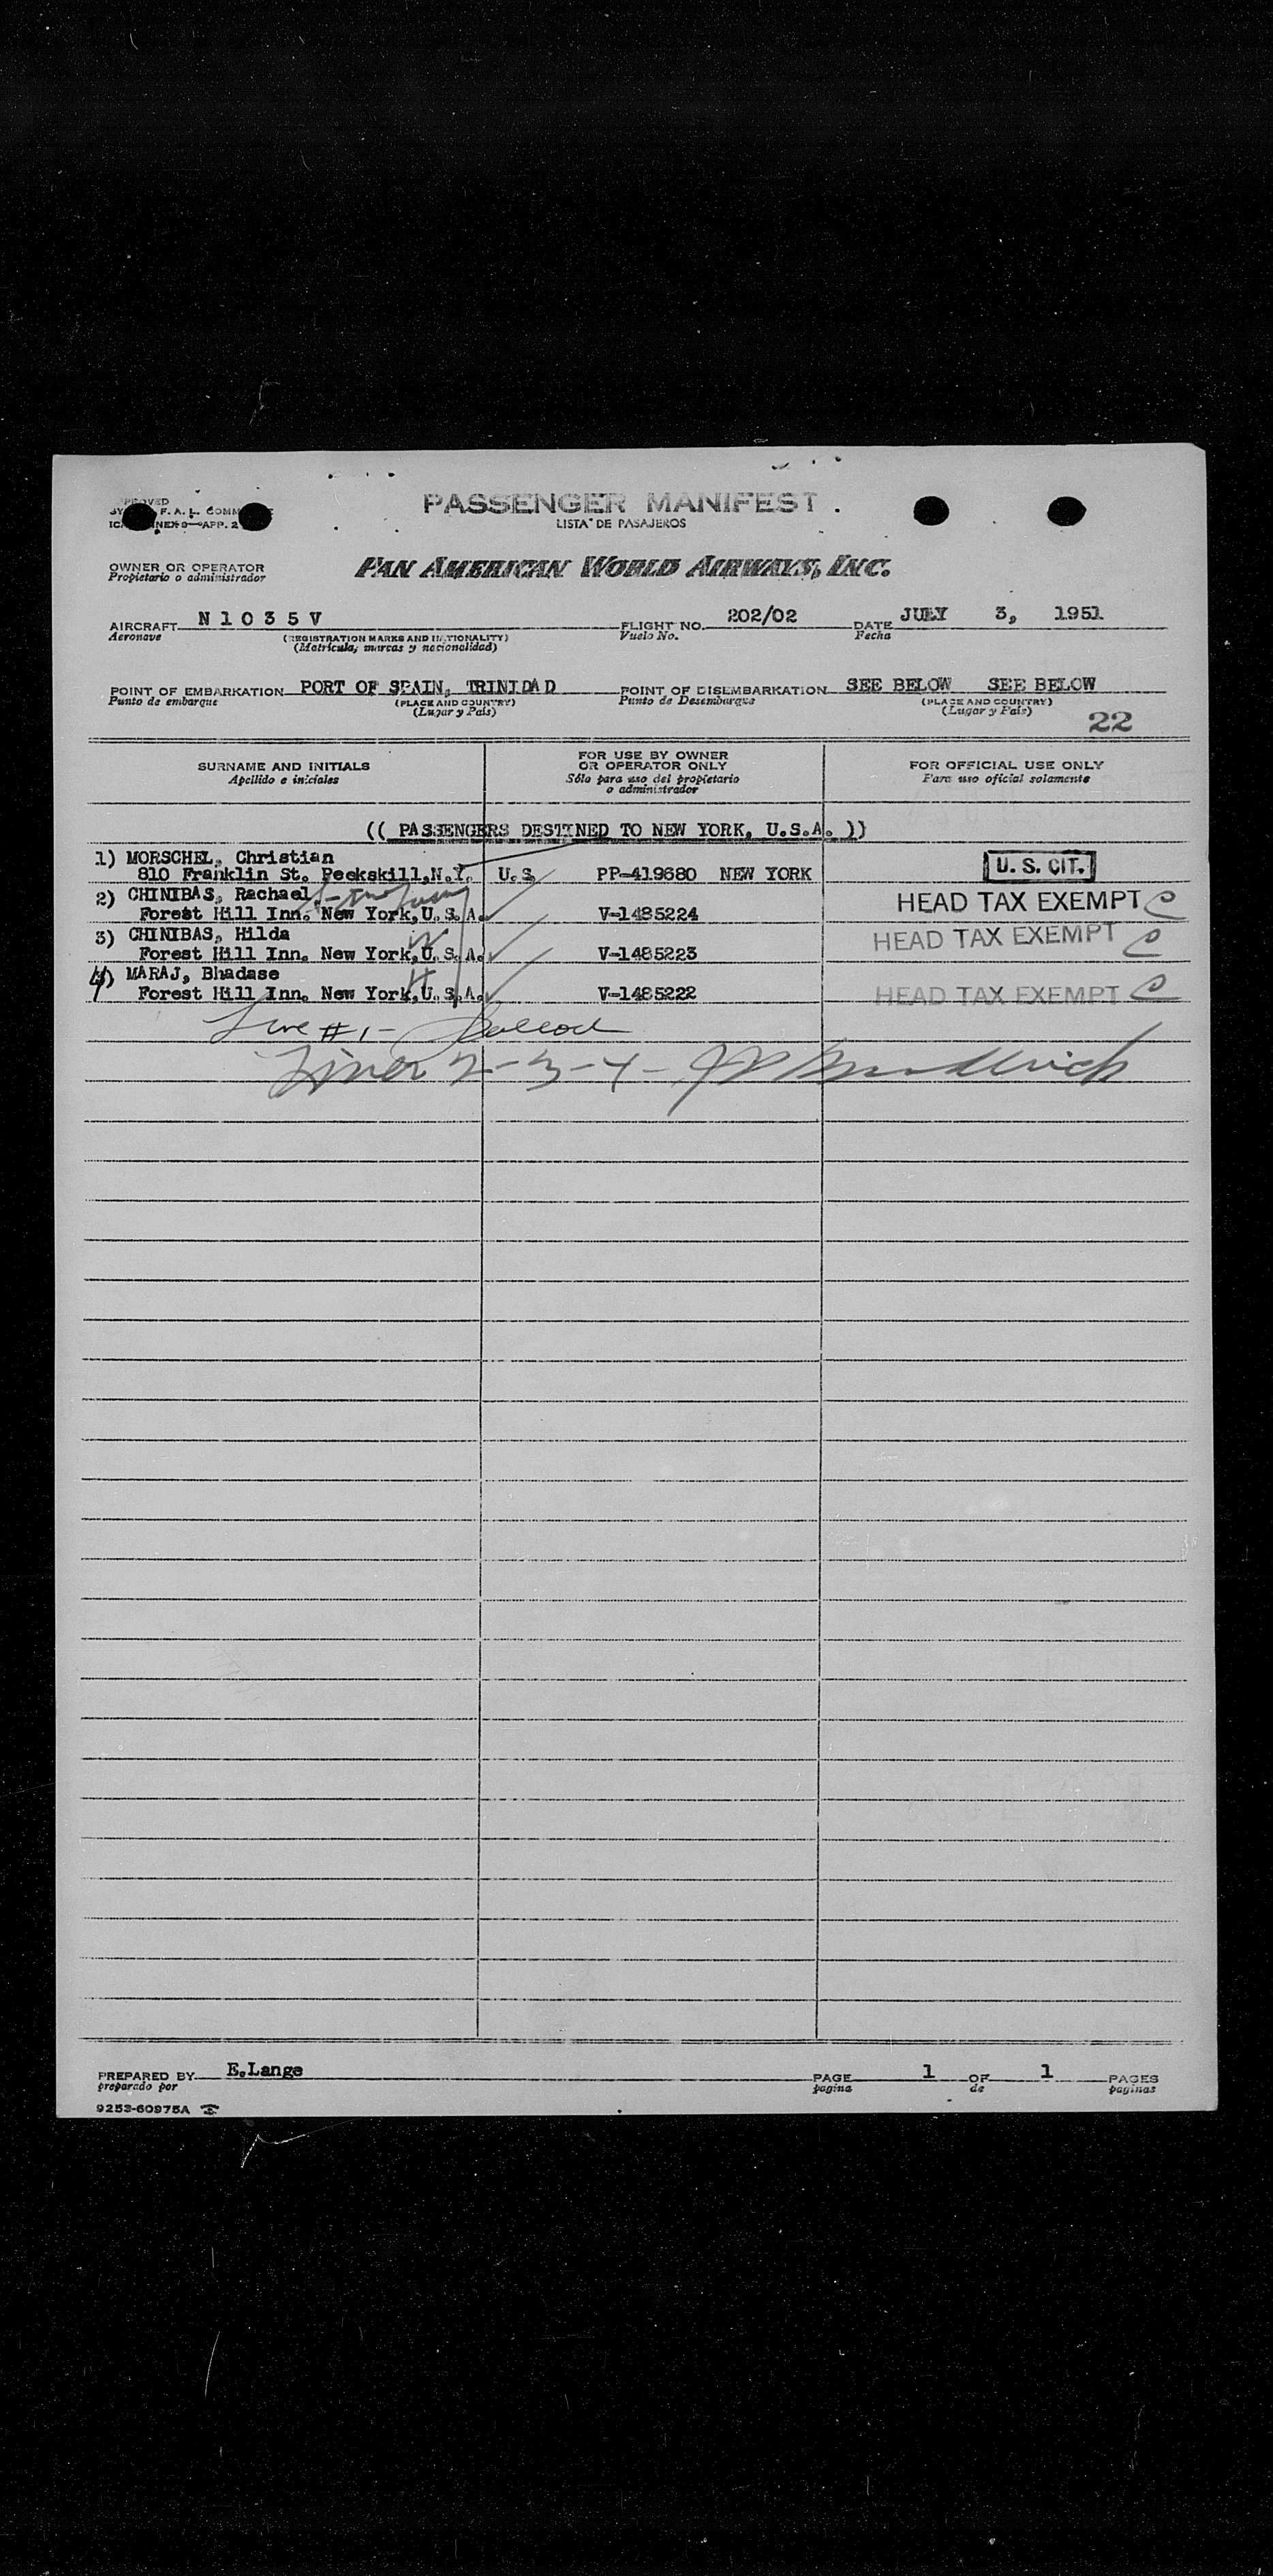 PASSENGER MANIFEST
LISTA DE PASAJEROS
APP. 2
OWNER OR OPERATOR
Propietario o administrador
PAN AMERICAN WORLD AIRWAYS, INC.
AIRCRAFT N 1 0 3 5 V FLIGHT NO. 202/02 DATE JULY 3, 1951
Aeronave (REGISTRATION MARKS AND NATIONALITY) Vuelo No. Fecha
(Matrícula, marcas y nacionalidad)
POINT OF EMBARKATION PORT OF SPAIN, TRINIDAD POINT OF DISEMBARKATION SEE BELOW SEE BELOW
Punto de embarque (PLACE AND COUNTRY) Punto de Desembarque (PLACE AND COUNTRY)
(Lugar y País) (Lugar y País)
22
SURNAME AND INITIALS
Apellido e iniciales
FOR USE BY OWNER
OR OPERATOR ONLY
Sólo para uso del propietario
o administrador
FOR OFFICIAL USE ONLY
Para uso oficial solamente
(( PASSENGERS DESTINED TO NEW YORK, U.S.A. ))
1) MORSCHEL, Christian
810 Franklin St. Peekskill,N.Y. U.S. PP-419680 NEW YORK U. S. CIT.
2) CHINIBAS, Rachael
Forest Hill Inn. New York,U.S.A. V-1485224 HEAD TAX EXEMPT C
3) CHINIBAS, Hilda
Forest Hill Inn. New York,U.S.A. V-1485223 HEAD TAX EXEMPT C
4) MARAJ, Bhadase
Forest Hill Inn. New York,U.S.A. V-1485222 HEAD TAX EXEMPT C
Line #1-
Lines 2-3-4-
PREPARED BY E.Lange PAGE 1 OF 1 PAGES
preparado por pagina de paginas
9253-60975A